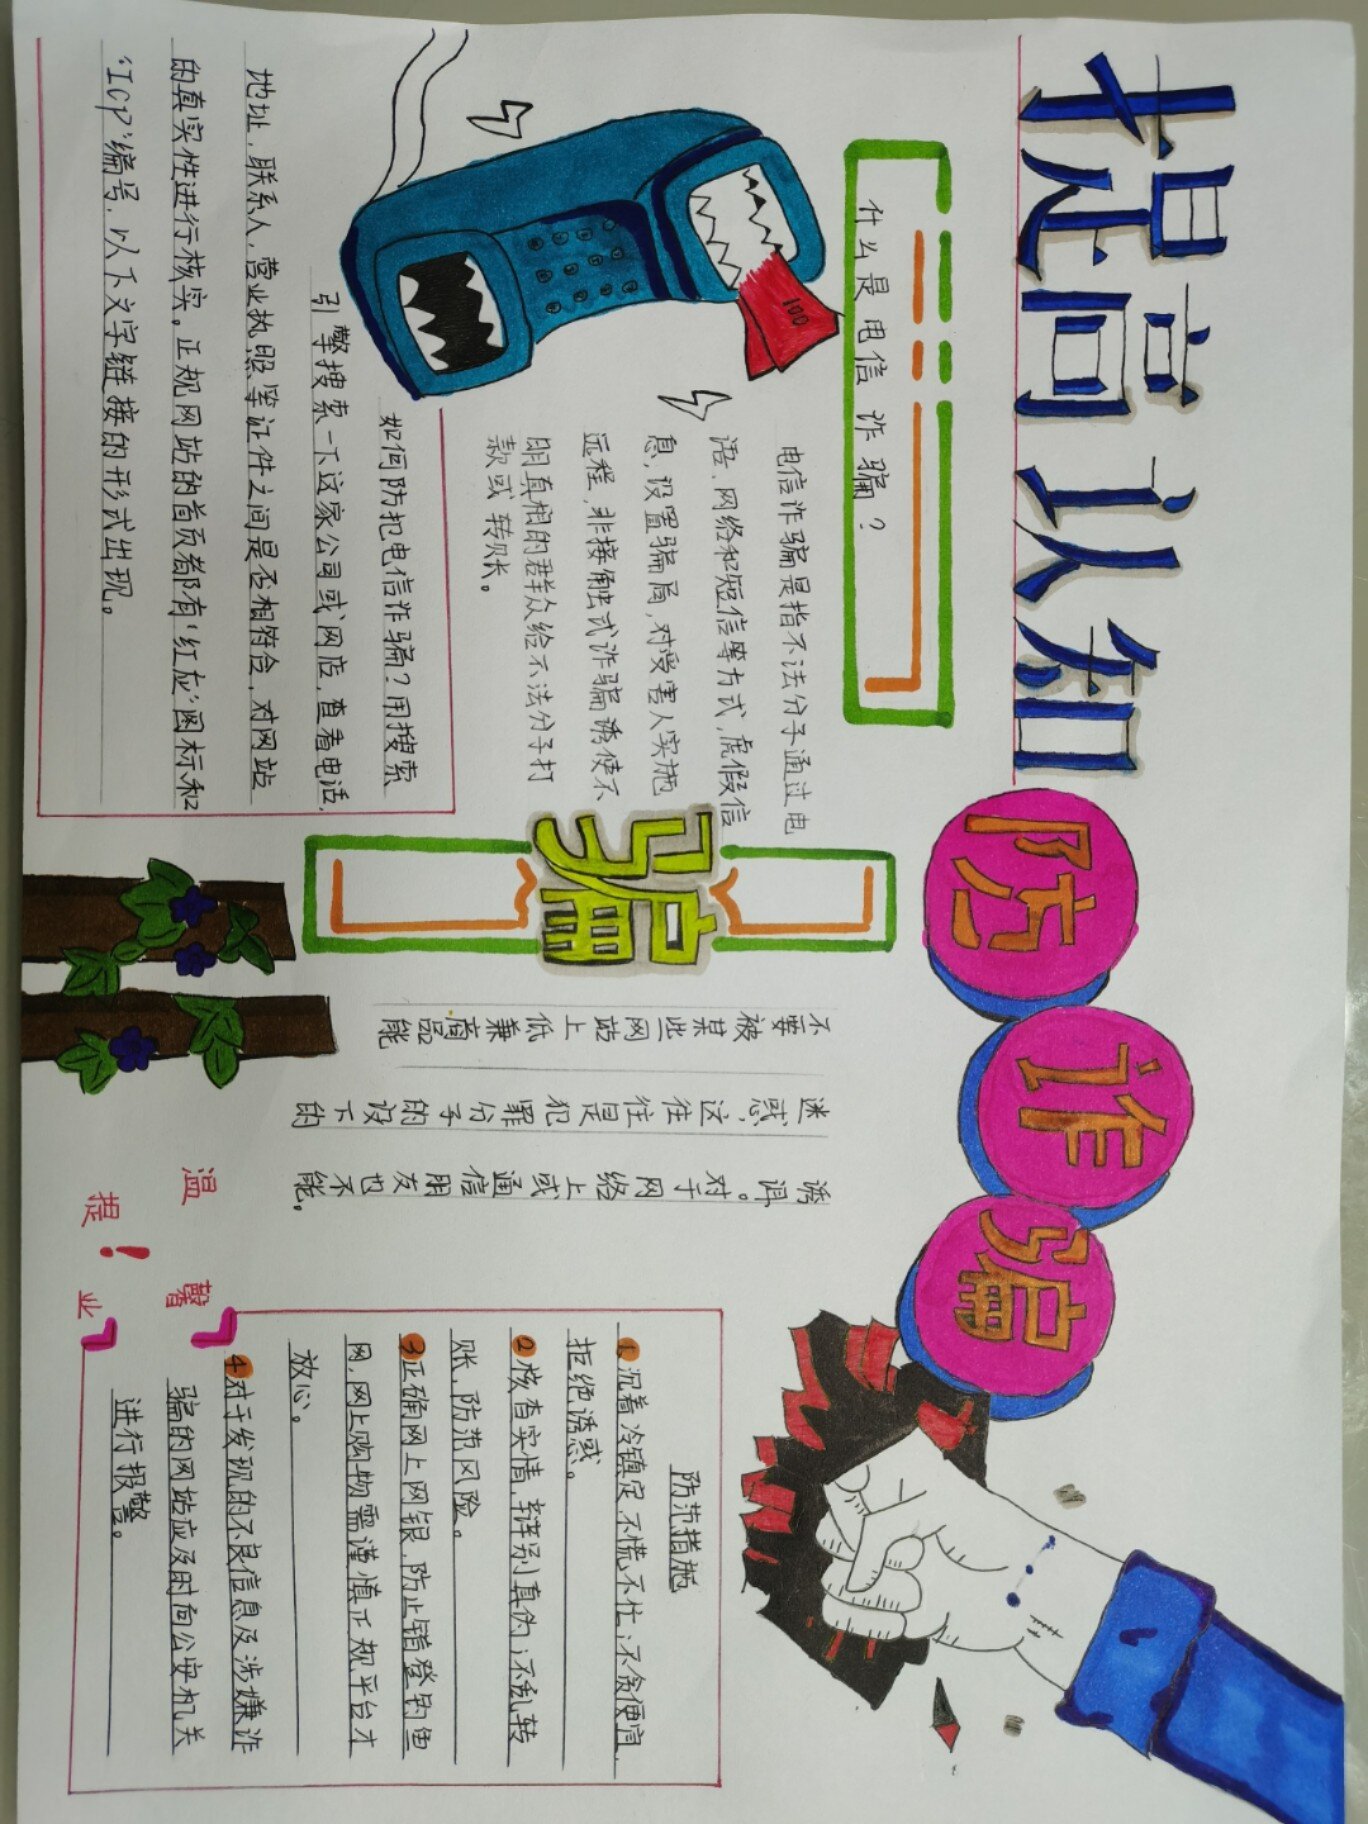 提高认知
防诈骗
什么是电信诈骗?
100
电信诈骗是指不法分子通过电
语、网络和短信等方式,虎假信
息,设置骗局,对受害人实施
远程,非接触式诈骗诱使不
明真相的群众给不法分子打
款或转账。
如何防犯电信诈骗?用搜索
引擎搜索一下这家公司或网店,查看电话,
地址,联系人,营业执照等证件之间是否相符合,对网站
的真实性进行核实。正规网站的首页都有‘红应’图标和
“Icp”编号,以下文字链接的形式出现。
骗
不要被某些网站上低兼商品能
迷惑,这往往是犯罪分子的设下的
诱饵。对于网络上或通信朋友也不能。
防范措施
1沉着冷镇定,不慌不忙,不贪便宜,
拒绝诱惑。
2核查实情,辩别真伪,不乱转
账,防范风险。
3正确网上网银,防止错登钓鱼
网,网上购物需谨慎正规平台才
放心。
4对于发现的不良信息及涉嫌诈
骗的网站应及时向公安机关
进行报警。
温馨
提!